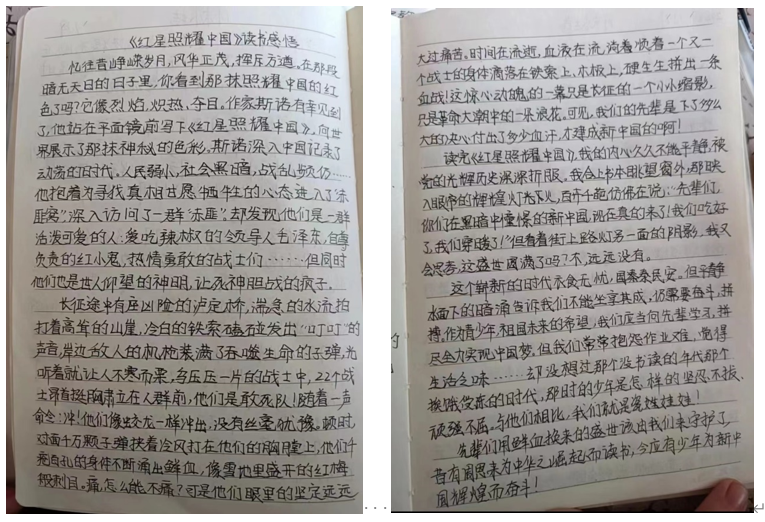 《红星照耀中国》读书感悟
忆往昔峥嵘岁月,风华正茂,挥斥方遒。在那段
暗无天日的日子里,你看到那抹照耀中国的红
色了吗?它像烈焰,炽热、夺目。作家斯诺有幸见到
了,他站在平面镜前写下《红星照耀中国》,向世
界展示了那抹神秘的色彩。斯诺深入中国记录了
动荡的时代。人民弱小,社会黑暗,战乱频仍……
他抱着为寻找真相甘愿牺牲的心态进入了“赤
匪窝”深入访问了一群“赤匪”,却发现他们是一群
活泼可爱的人:爱吃辣椒的领导人毛泽东,自尊
负责的红小鬼,热情勇敢的战士们……但同时
他们也是世人仰望的神明,让死神胆战的疯子。
长征途中有座凶险的泸定桥,湍急的水流拍
打着高耸的山崖,冷白的铁索磕碰发出“叮叮”的
声音,岸边敌人的机枪装满了吞噬生命的子弹,光
听着就让人不寒而栗。乌压压一片的战士中,22个战
士昂首挺胸肃立在人群前,他们是敢死队!随着一声
命令:冲!他们像蛟龙一样冲出,没有丝毫犹豫。顿时,
对面千万颗子弹挟着冷风打在他们的胸膛上,他们千
疮百孔的身体不断涌出鲜血,像雪地里盛开的红梅
般刺目。痛,怎么能不痛?可是他们眼里的坚定远远
大过痛苦。时间在流逝,血液在流淌着顺着一个又一
个战士的身体滴落在铁索上、木板上,硬生生拼出一条
血战!这惊心动魄的一幕只是长征的一个小小缩影,
只是革命大潮中的一朵浪花。可见,我们的先辈是下了多么
大的决心付出了多少血汗,才建成新中国的啊!
读完《红星照耀中国》,我的内心久久不能平静,被
党的光辉历史深深折服。我合上书本眺望窗外,那映
入眼帘的辉煌灯光下,仿佛在说:“先辈们,
你们在黑暗中憧憬的新中国,现在真的来了!我们吃好
了,我们穿暖了!”但看着街上路灯另一面的阴影,我又
会思考,这盛世圆满了吗?不,远远没有。
这个崭新的时代衣食无忧,国泰民安。但平静
水面下的暗涌告诉我们不能坐享其成,仍需要奋斗,拼
搏,作为青少年祖国未来的希望,我们应当向先辈学习,拼
尽全力实现中国梦。但我们常常抱怨作业难,觉得
生活乏味……却没想过那个没书读的年代那个
挨饿受冻的时代,那时的少年是怎样的坚忍不拔、
顽强不屈。与他们相比,我们就是瓷娃娃!
先辈们用鲜血换来的盛世该由我们来守护了,
昔有周恩来为中华之崛起而读书,今应有少年为新中
国辉煌而奋斗!